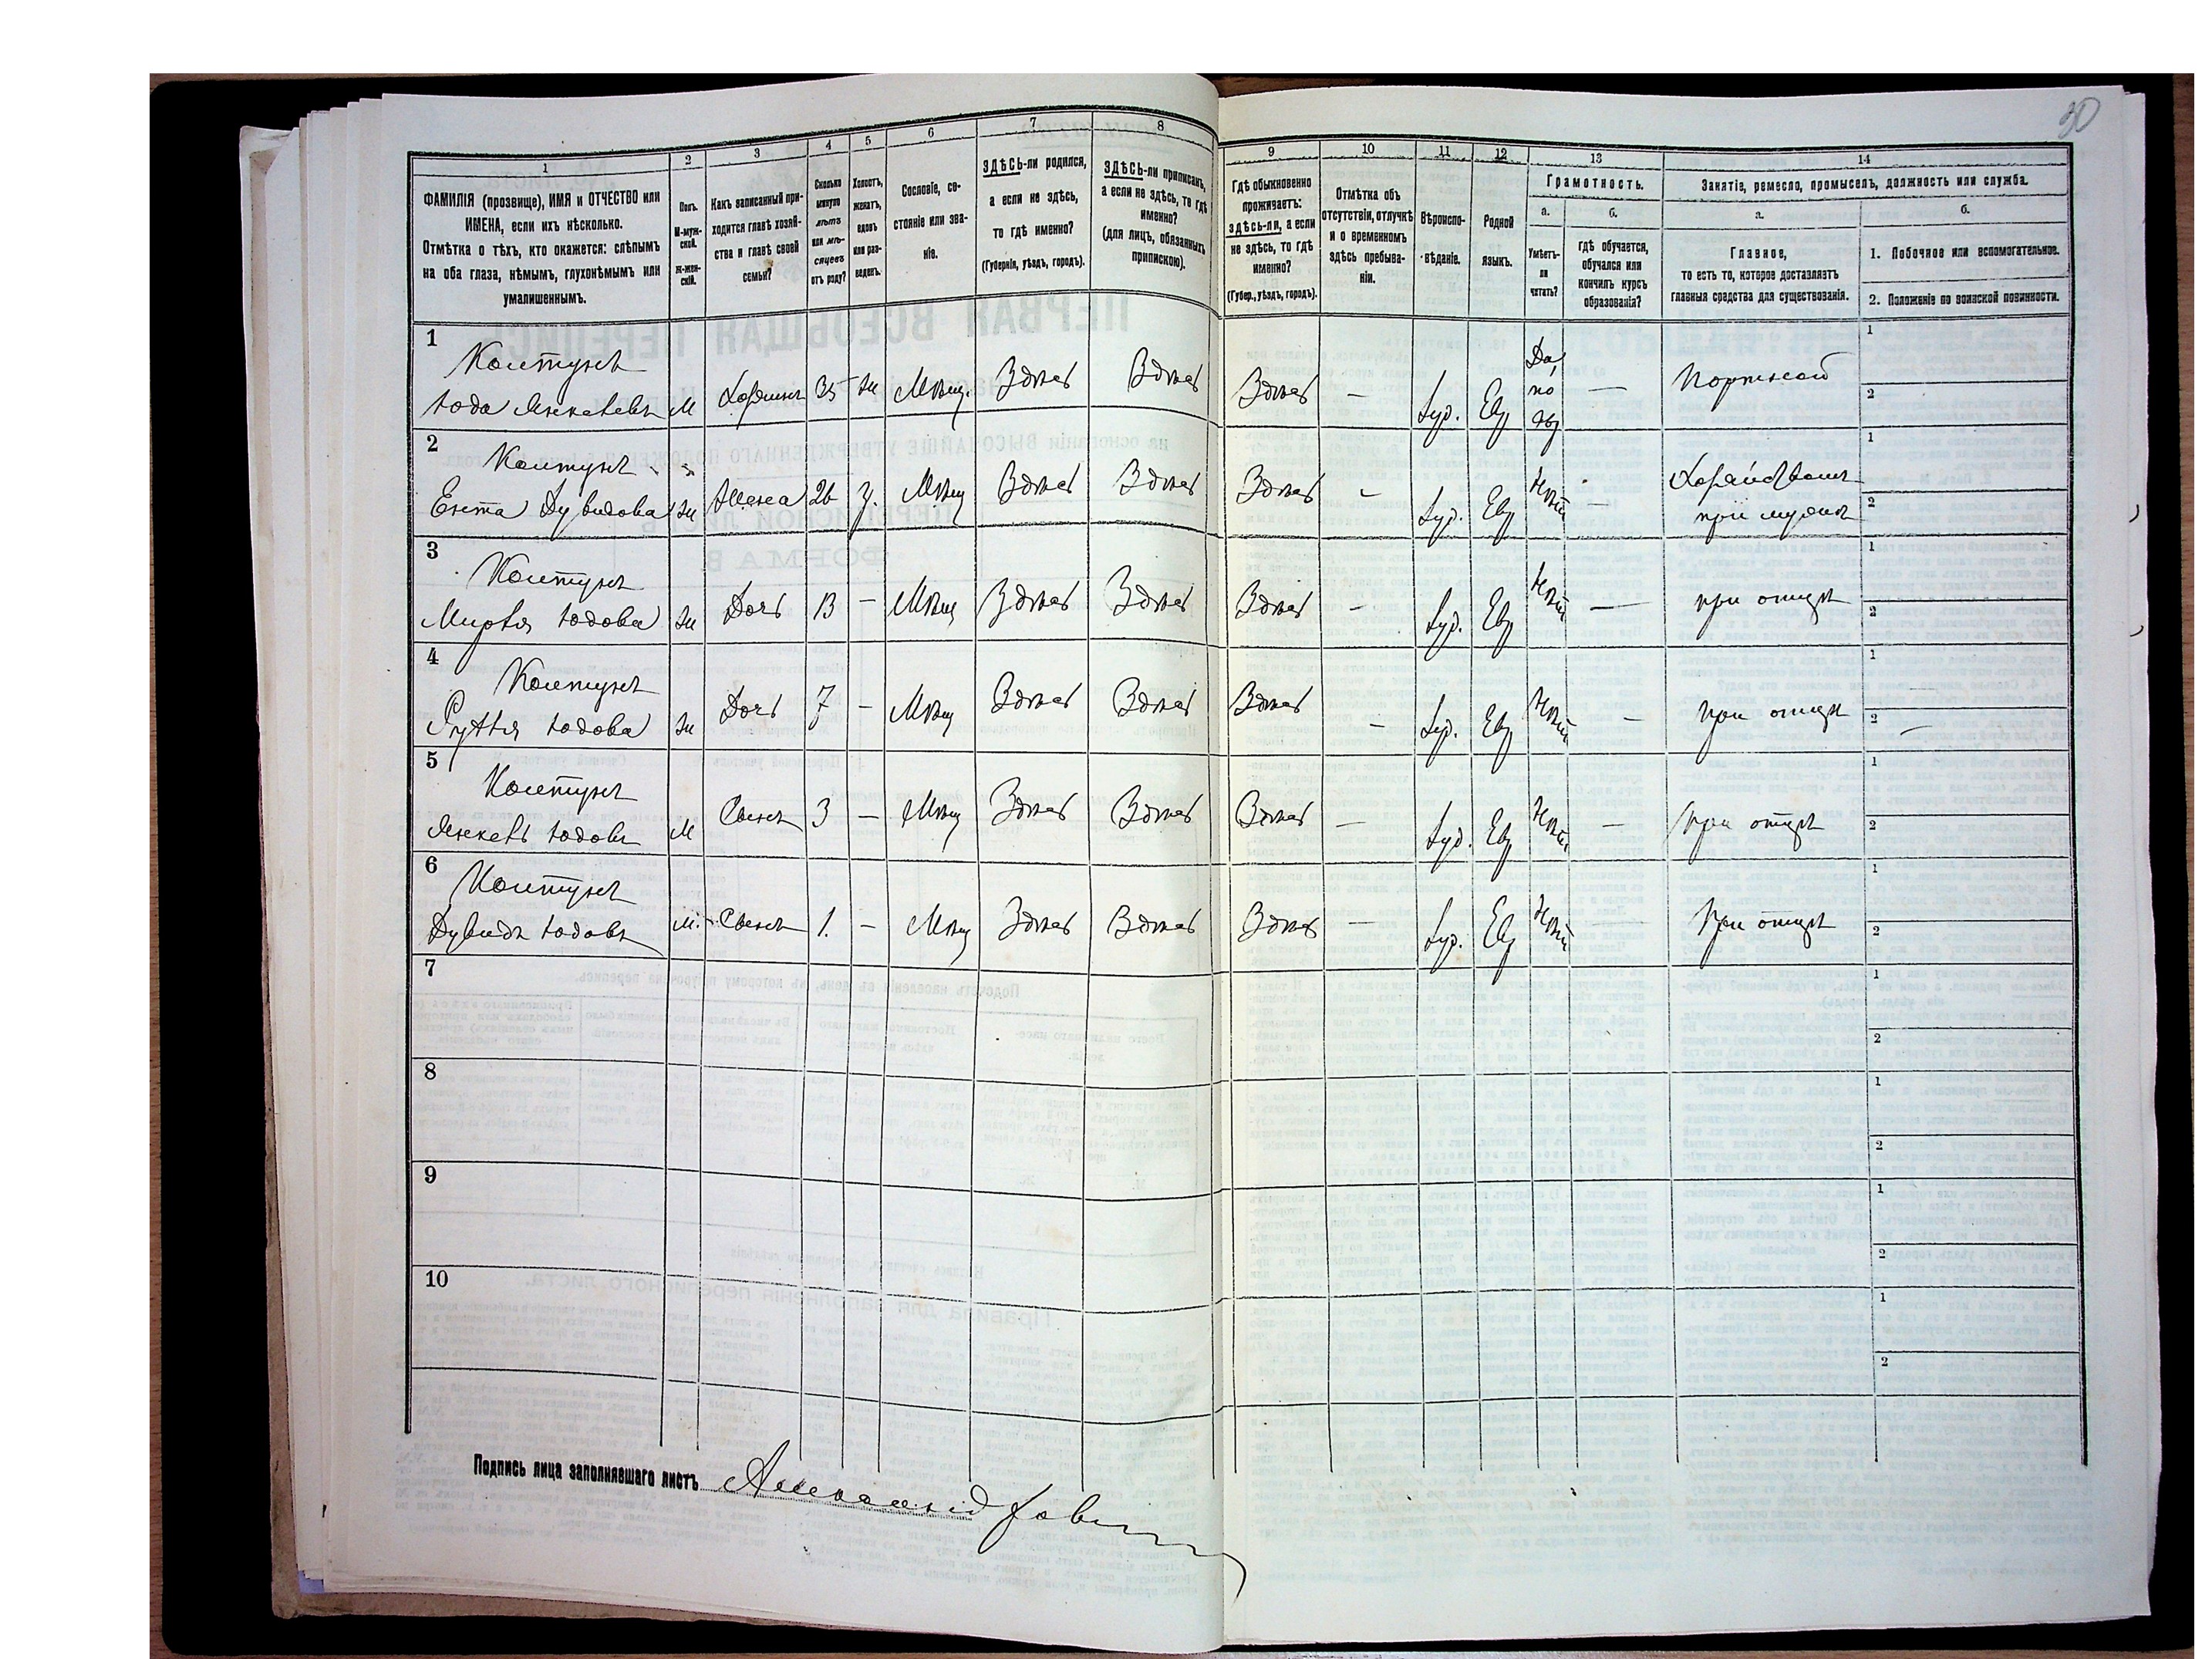 30
1
2
3
4
5
6
7
8
9
10
11
12
13
14
ФАМИЛІЯ (прозвище), ИМЯ и ОТЧЕСТВО или
ИМЕНА, если ихъ нѣсколько.
Отмѣтка о тѣхъ, кто окажется: слѣпымъ
на оба глаза, нѣмымъ, глухонѣмымъ или
умалишеннымъ.
Полъ.
М-муж-
ской.
Ж-жен-
скій.
Какъ записанный при-
ходится главѣ хозяй-
ства и главѣ своей
семьи?
Сколько
минуло
лѣтъ
или мѣ-
сяцевъ
отъ роду?
Холостъ,
женатъ,
вдовъ
или раз-
веденъ.
Сословіе, со-
стояніе или зва-
ніе.
ЗДѢСЬ-ли родился,
а если не здѣсь,
то гдѣ именно?
(Губернія, уѣздъ, городъ).
ЗДѢСЬ-ли приписанъ,
а если не здѣсь, то гдѣ
именно?
(для лицъ, обязанныхъ
припискою).
Гдѣ обыкновенно
проживаетъ:
здѣсь-ли, а если
не здѣсь, то гдѣ
именно?
(Губер., уѣздъ, городъ).
Отмѣтка объ
отсутствіи, отлучкѣ
и о временномъ
здѣсь пребыва-
ніи.
Вѣроиспо-
вѣданіе.
Родной
языкъ.
Грамотность.
а.
Умѣетъ-
ли
читать?
б.
Гдѣ обучается,
обучался или
кончилъ курсъ
образованія?
Занятіе, ремесло, промыселъ, должность или служба.
а.
Главное,
то есть то, которое доставляетъ
главныя средства для существованія.
б.
1. Побочное или вспомогательное.
2. Положеніе по воинской повинности.
1
Колтунъ
Іода Янкелевъ М Хозяинъ 35 ж Мѣщ. Здѣсь Здѣсь Здѣсь — Іуд. Евр Да, по евр — Портной
1
2
2
Колтунъ
Ента Дувидова ж Жена 26 з. Мѣщ Здѣсь Здѣсь Здѣсь — Іуд. Евр Нѣтъ —
при мужѣ
1
2
3
Колтунъ
Іодова ж Дочь 13 — Мѣщ Здѣсь Здѣсь Здѣсь — Іуд. Евр Нѣтъ — при отцѣ
1
2
4
Колтунъ
Іодова ж Дочь 7 — Мѣщ Здѣсь Здѣсь Здѣсь — Іуд. Евр Нѣтъ — при отцѣ
1
2
5
Колтунъ
Янкель Іодовъ М Сынъ 3 — Мѣщ Здѣсь Здѣсь Здѣсь — Іуд. Евр Нѣтъ — при отцѣ
1
2
6
Колтунъ
Дувидъ Іодовъ М. Сынъ 1. — Мѣщ Здѣсь Здѣсь Здѣсь — Іуд. Евр Нѣтъ — при отцѣ
1
2
7
1
2
8
1
2
9
1
2
10
1
2
Подпись лица заполнявшаго листъ